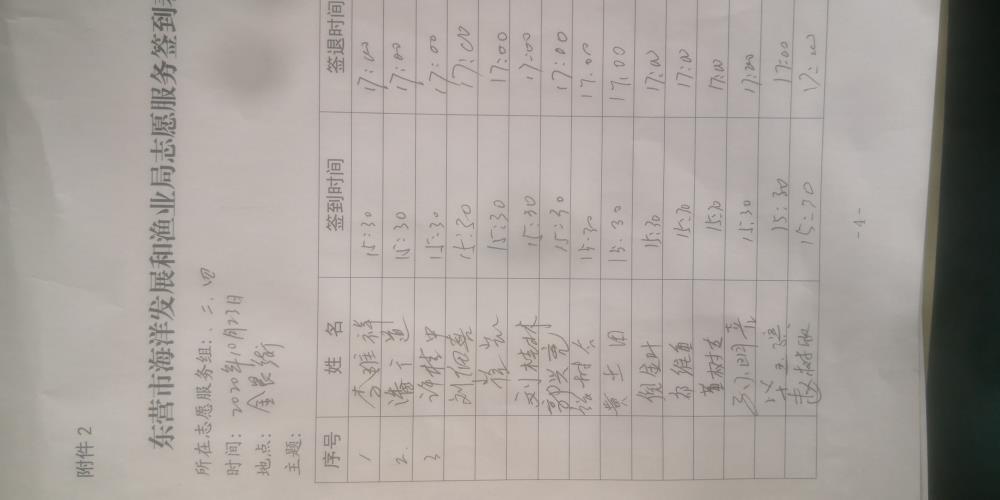 附件2
东营市海洋发展和渔业局志愿服务签到表
所在志愿服务组：二、四
时间：2020年10月23日
地点：金银街
主题：
序号 姓 名 签到时间 签退时间
1 李胜祥 15:30 17:00
2 潘广道 15:30 17:00
3 15:30 17:00
刘佃真 15:30 17:00
崔 15:30 17:00
刘桂林 15:30 17:00
郭兴亮 15:30 17:00
15:30 17:00
黄土田 15:30 17:00
倪金叶 15:30 17:00
15:30 17:00
15:30 17:00
15:30 17:00
15:30 17:00
赵树 15:30 17:00
-4-